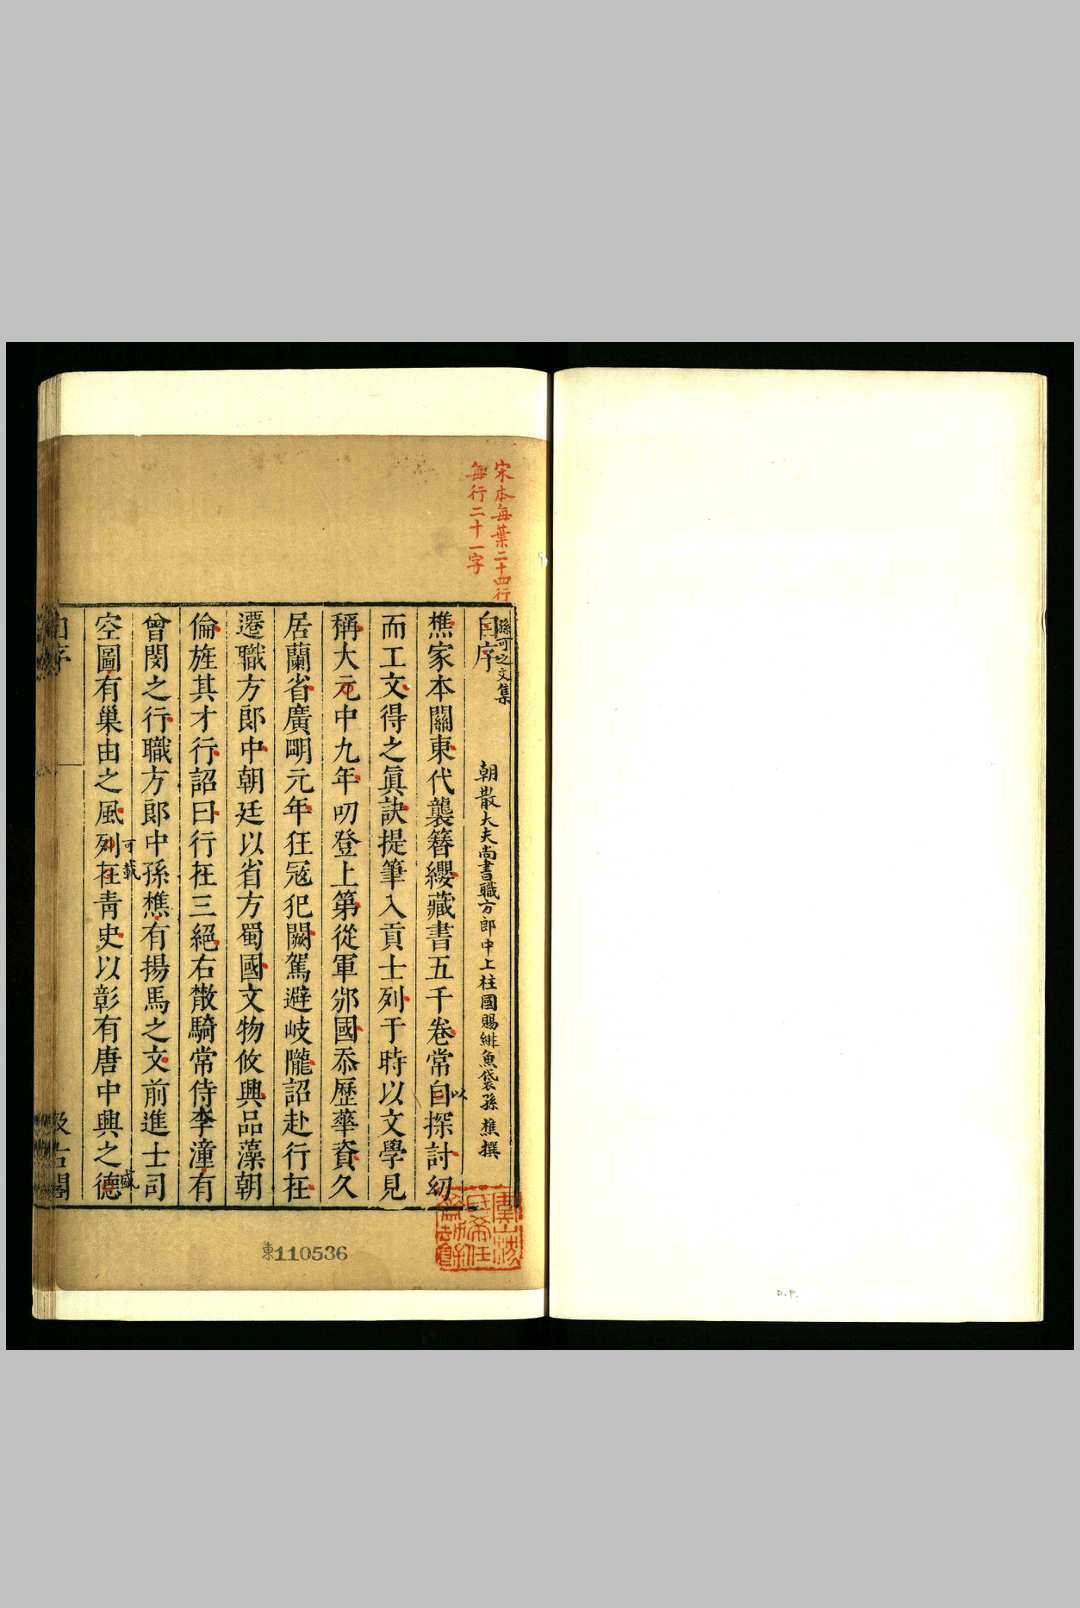 宋本每葉二十四行
每行二十一字
孫可之文集
自序
朝散大夫尚書職方郎中上柱國賜緋魚袋孫樵撰
樵家本關東代襲簪纓藏書五千卷常自探討幼
以
而工文得之眞訣提筆入貢士列于時以文學見
稱大元中九年叨登上第從軍邠國忝歷華資久
居蘭省廣明元年狂寇犯闕駕避岐隴詔赴行在
遷職方郎中朝廷以省方蜀國文物攸興品藻朝
倫旌其才行詔曰行在三絕右散騎常侍李潼有
曾閔之行職方郎中孫樵有揚馬之文前進士司
可載
空圖有巢由之風列在靑史以彰有唐中興之德
盛
自序
汲古閣
東110536
D.P.